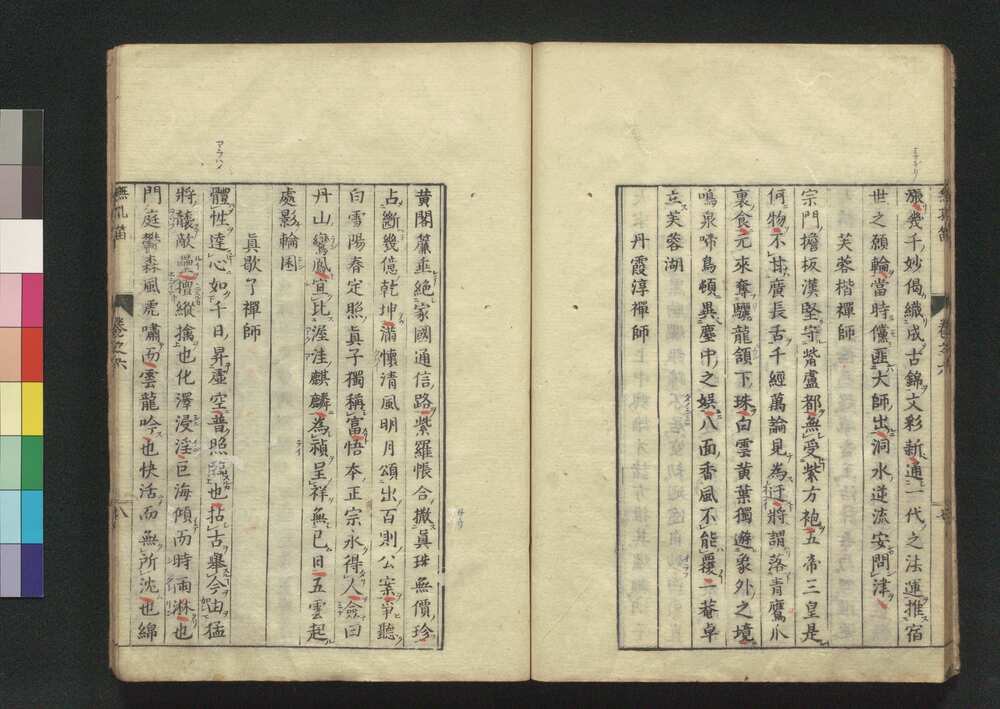 漲幾千妙偈織成古錦文彩新通一代之法運推宿
世之願輪當時儻匪大師出洞水逆流安問津
芙蓉楷禪師
宗門擔板漢堅守觜盧都無受紫方袍五帝三皇是
何物不甘廣長舌千經萬論見為迂將謂落青鷹爪
裏食元來奪驪龍頷下珠白雲黃葉獨遊象外之境
鳴泉啼鳥頓異塵中之娯八面香風不能覆一菴卓
立芙蓉湖
丹霞淳禪師
黃閣簾垂絶家國通信路紫羅悵合撒眞珠無價珍
占斷幾億乾坤滿懷清風明月頌出百則公案爭聽
白雪陽春定照眞子獨稱富悟本正宗永得人僉曰
丹山鸞鳳宜比渥洼麒麟為禎呈祥無已日五雲起
處影輪囷
眞歇了禪師
體性達心如千日昇虛空普照臨也拈古擧今由猛
將賊敵壘擅縱擒也化澤浸淫巨海傾而時雨淋也
門庭鬱森風虎嘯而雲龍吟也快活而無所沈也綿
卷之六
八